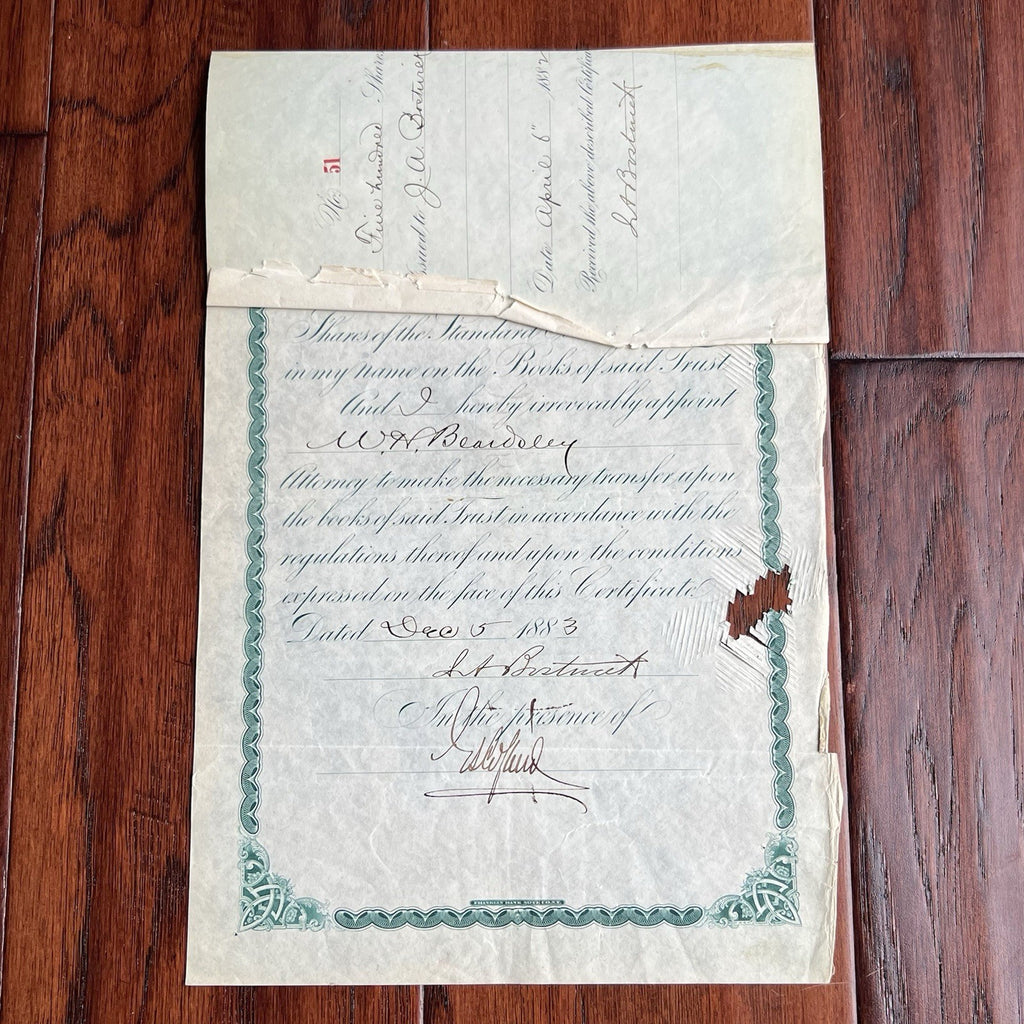 No 51
Five hundred Shares
Issued to J. A. Bostwick
Date April 6" 1882
Received the above described Certificate
J A Bostwick
Shares of the Standard
in my name on the Books of said Trust
And I hereby irrevocably appoint
W. H. Beardsley
Attorney to make the necessary transfer upon
the books of said Trust in accordance with the
regulations thereof and upon the conditions
expressed on the face of this Certificate
Dated Dec 5 1883
J A Bostwick
In the presence of
FRANKLIN BANK NOTE CO. N.Y.